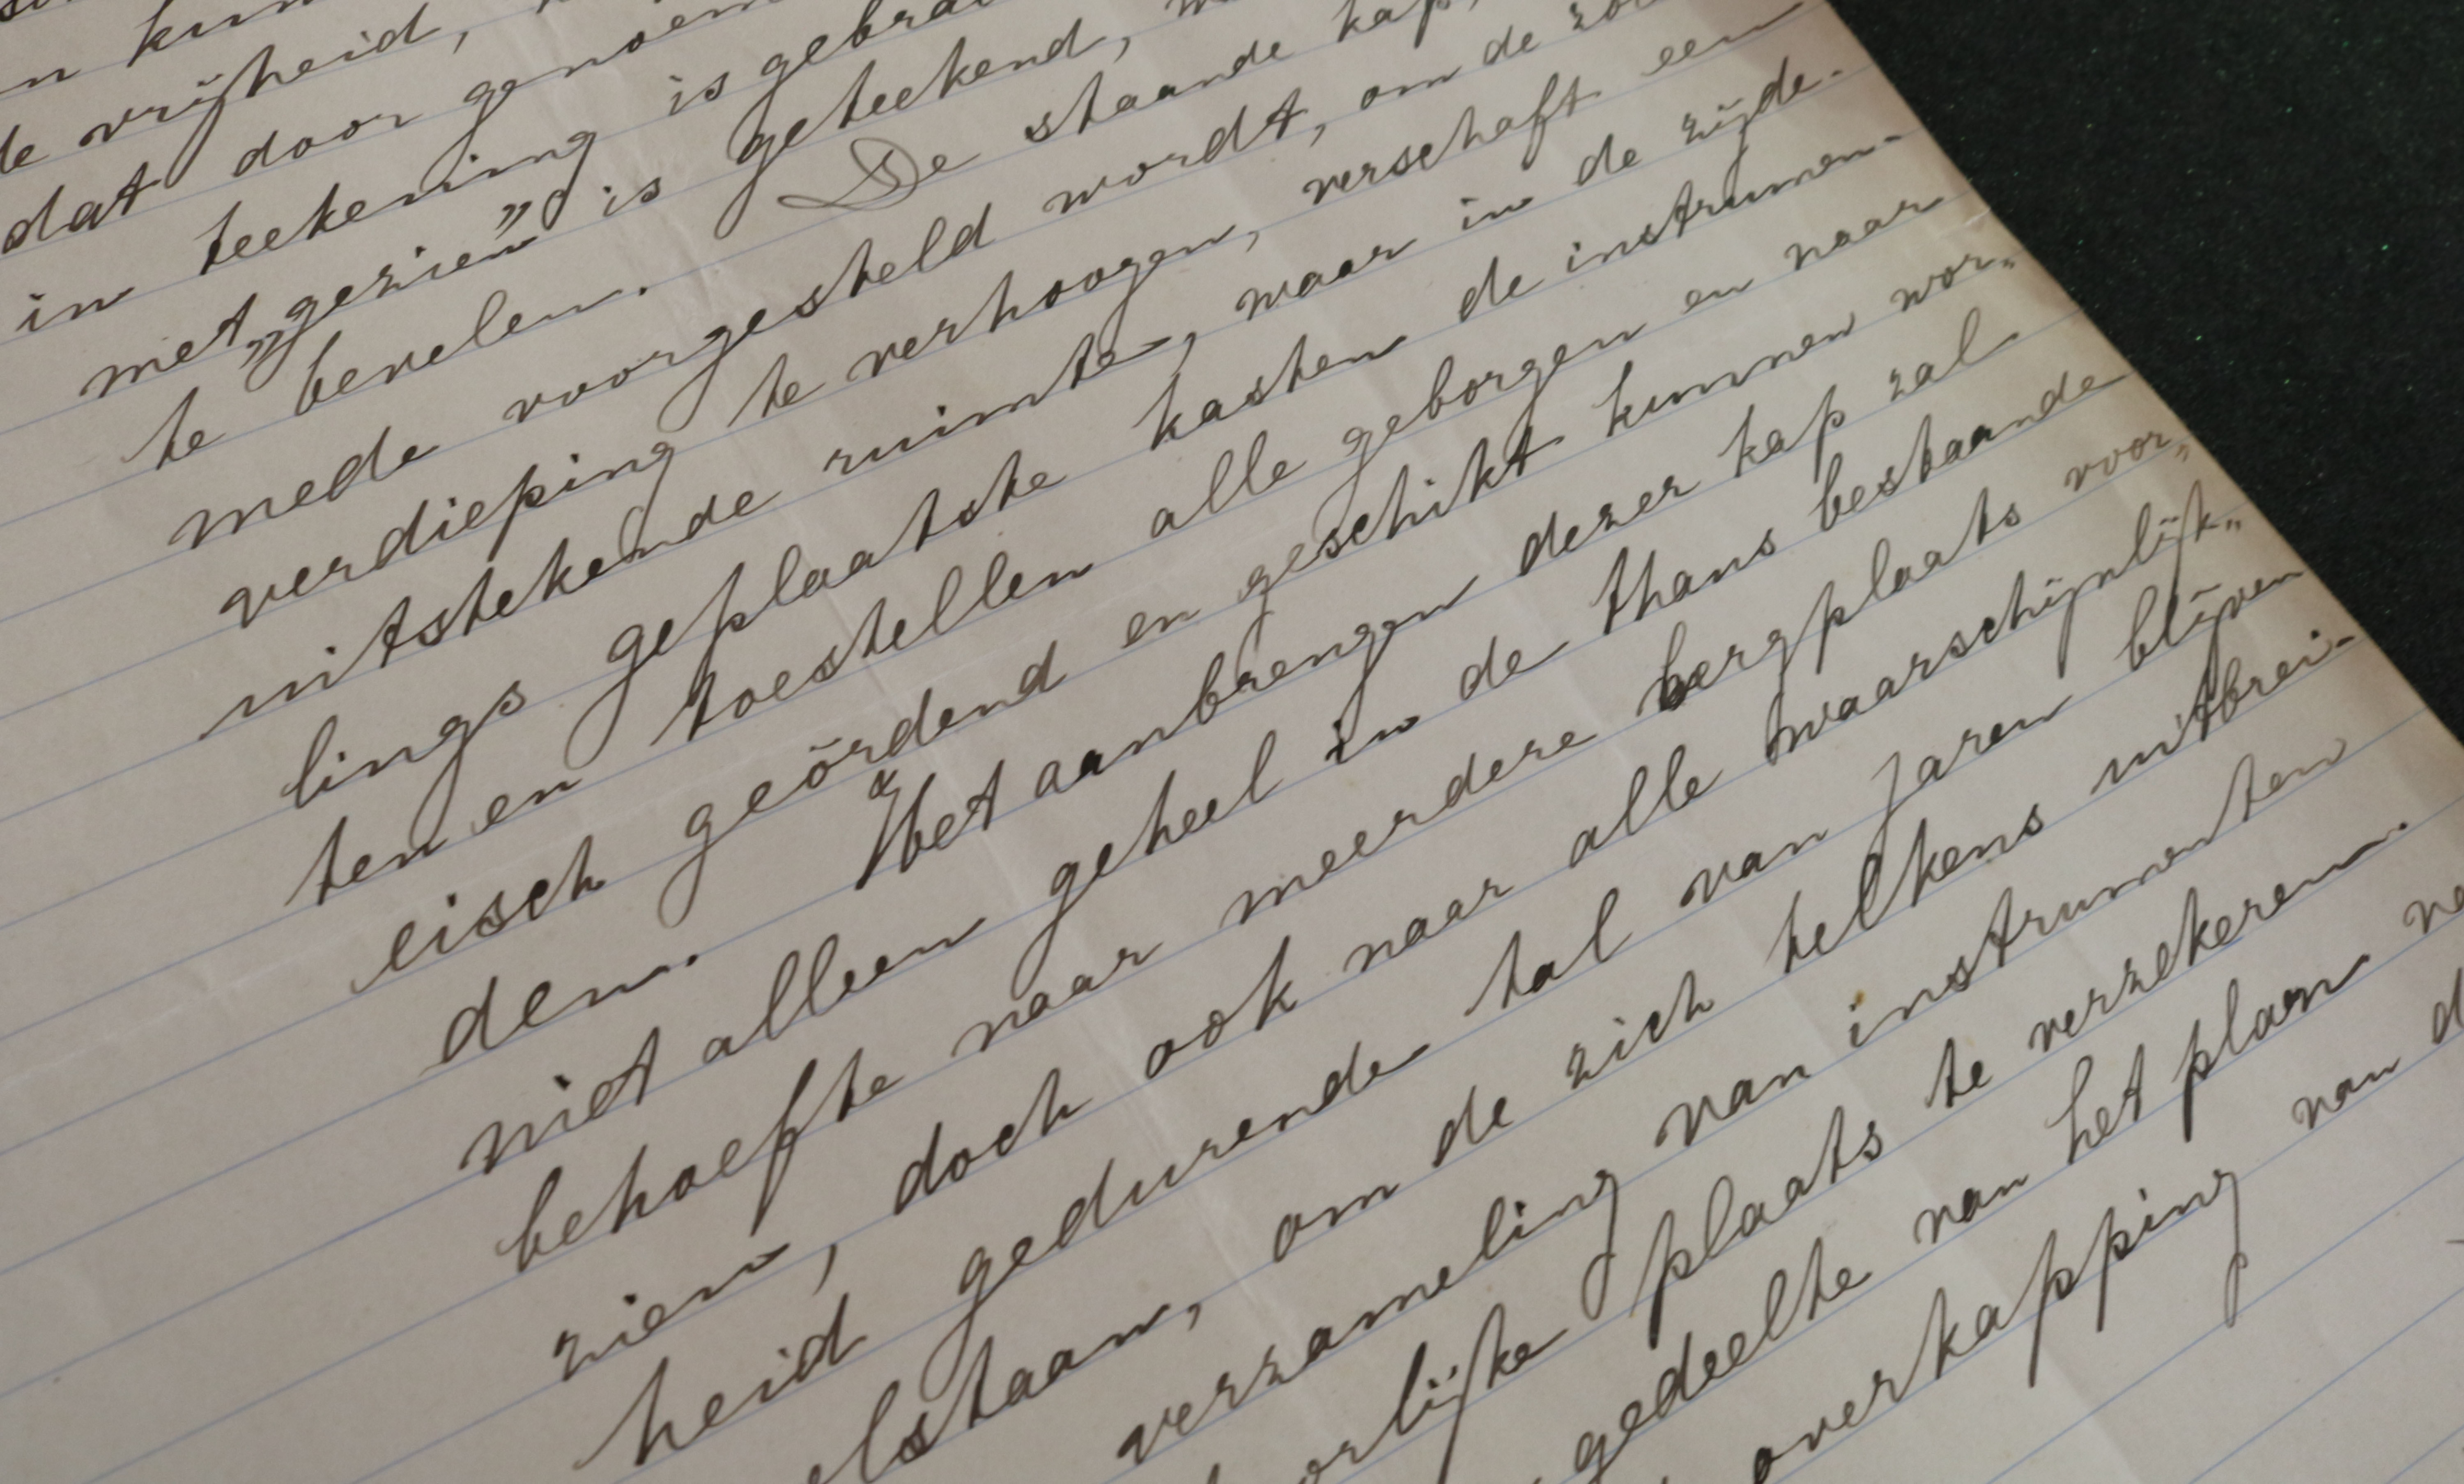 de vrijheid,
dat door genoem
in teekening is gebrac
met „gezien” is geteekend,
te bevelen. De staande kap,
mede voorgesteld wordt, om de
verdieping te verhoogen, verschaft een
uitstekende ruimte, waar in de zijde-
lings geplaatste kasten de instrumen-
ten en toestellen alle geborgen en naar
eisch geördend en geschikt kunnen wor„
den. Het aanbrengen dezer kap zal
niet alleen geheel in de thans bestaande
behoefte naar meerdere bergplaats voor„
zien, doch ook naar alle waarschijnlijk„
heid gedurende tal van jaren blijven
lstaan, om de zich telkens uitbrei-
verzameling van instrumenten
orlijke plaats te verzekeren.
gedeelte van het plan
overkapping van d